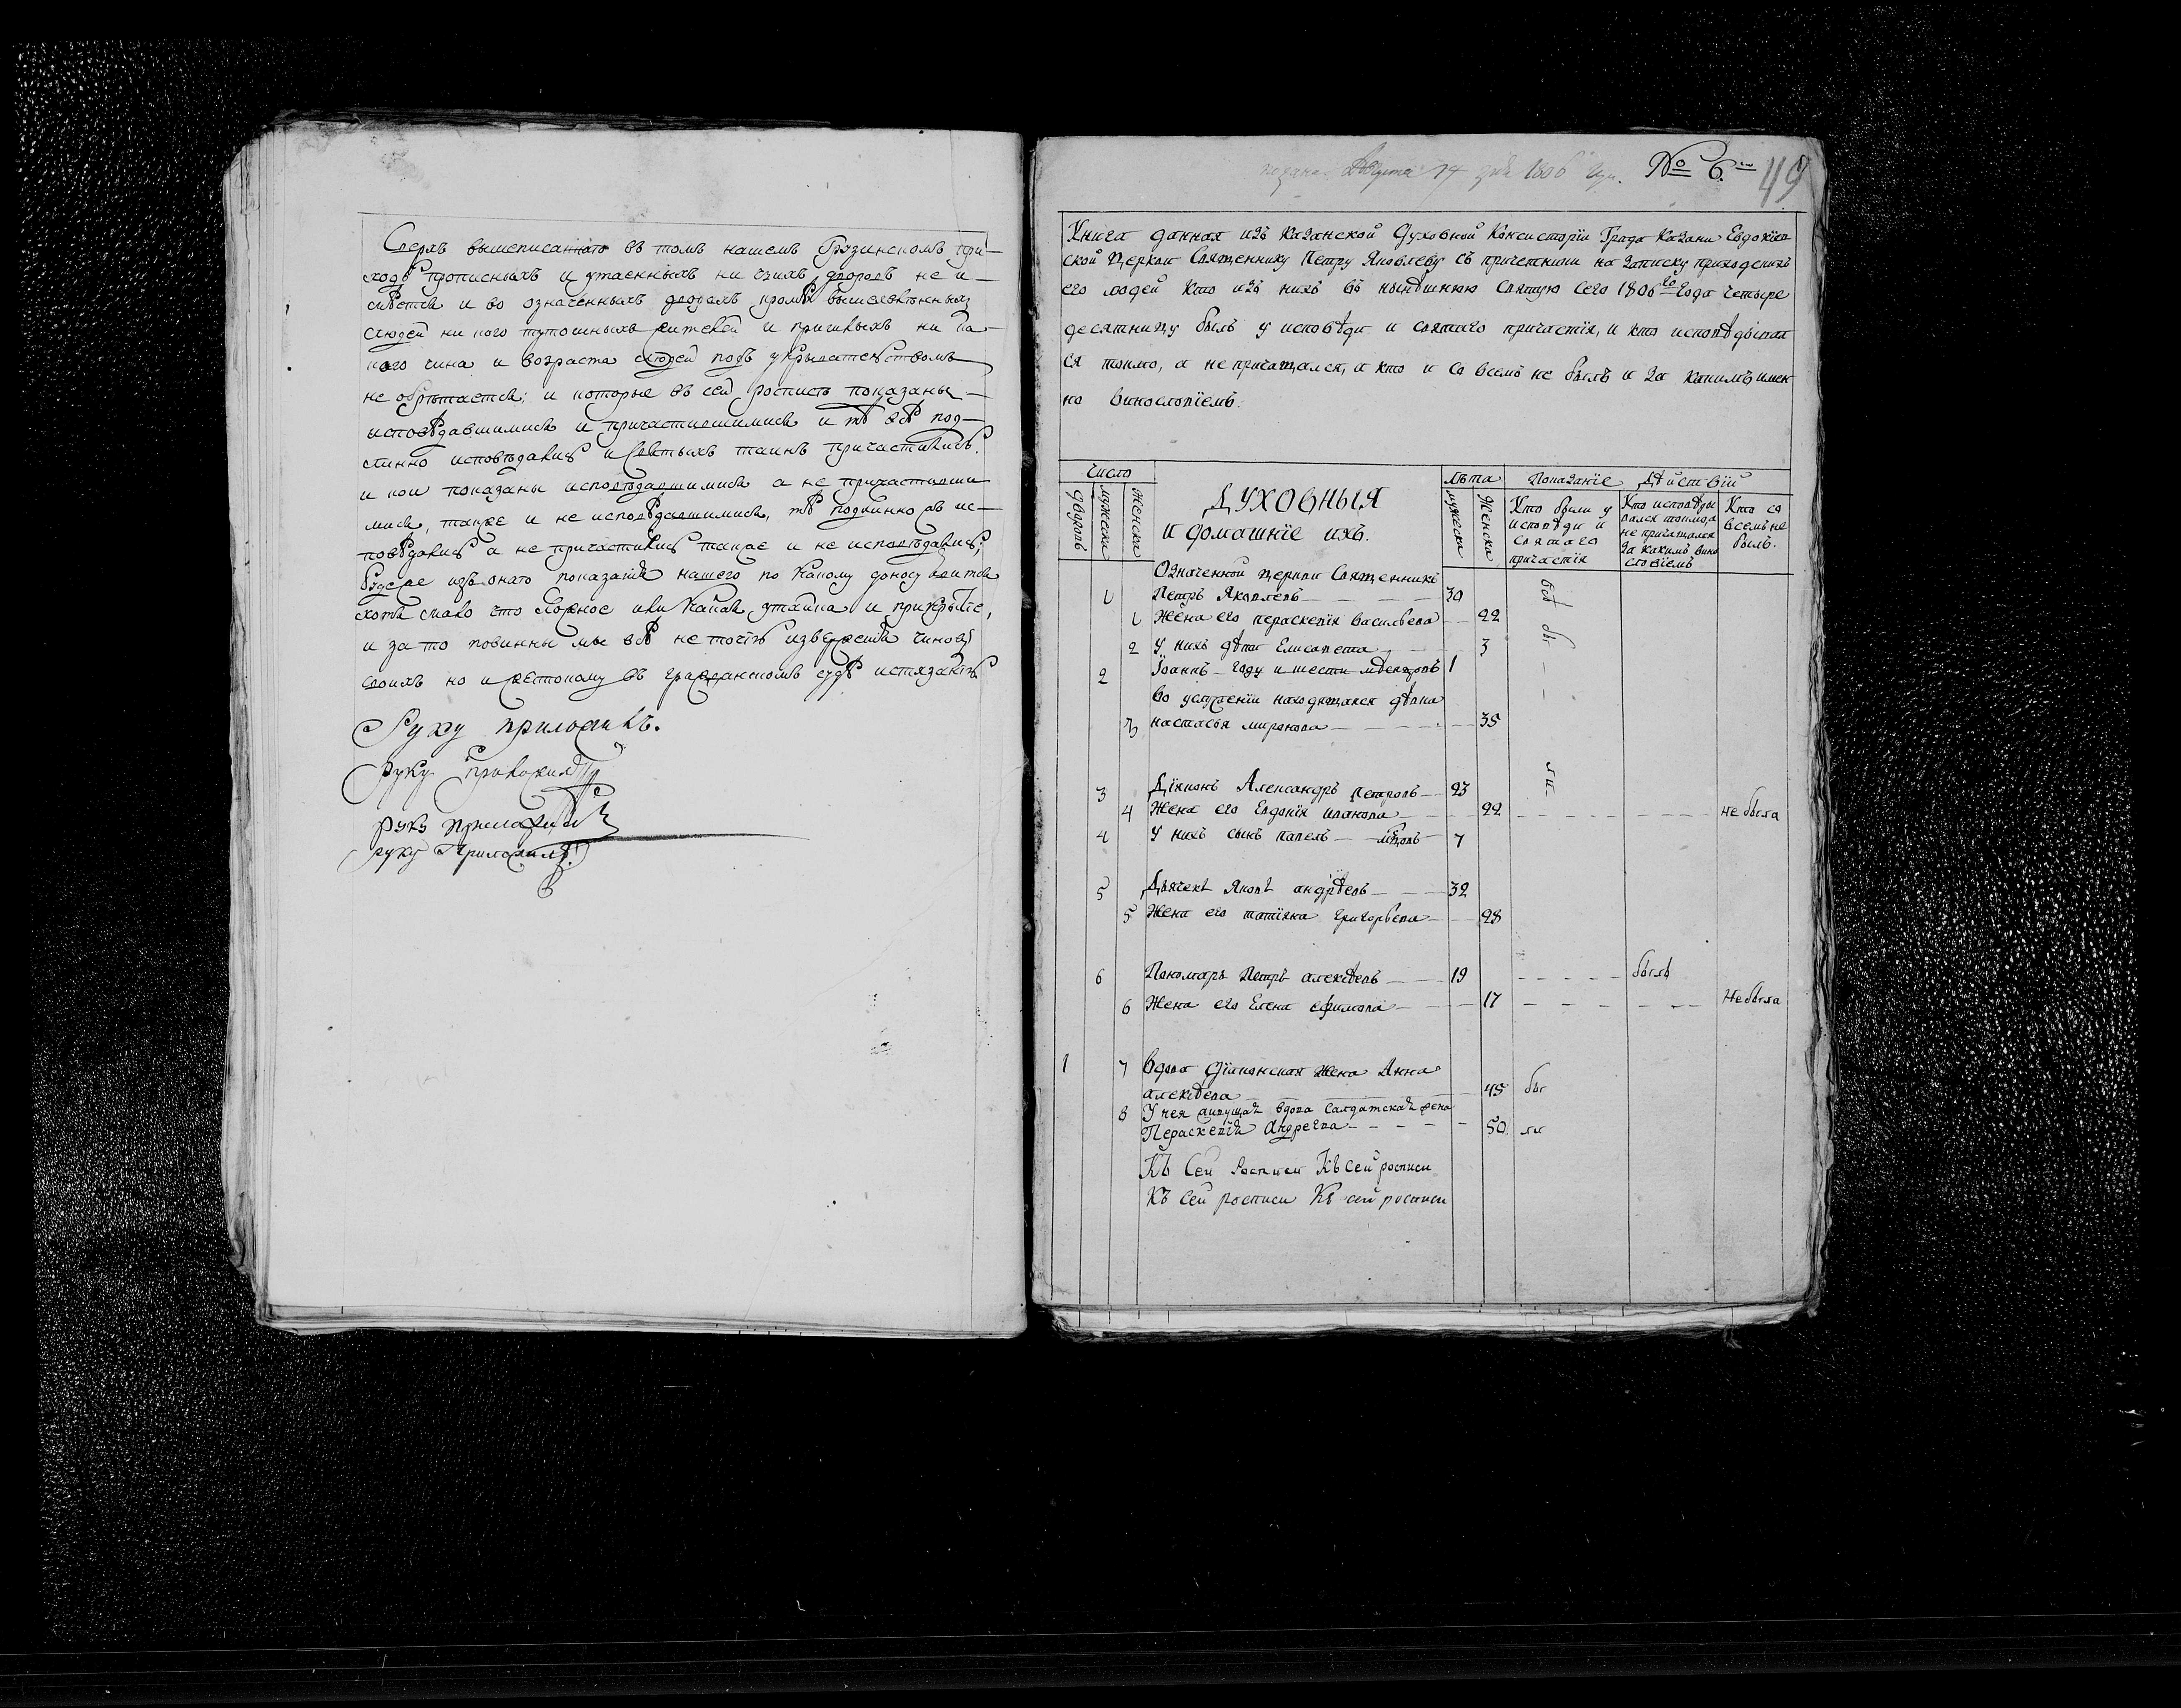 Сверхъ вышеписаннаго въ томъ нашемъ Грузинскомъ при-
ходѣ прописныхъ и утаенныхъ ни чьихъ дворовъ не и-
мѣется и во означенныхъ дворахъ кромѣ вышеявленныхъ
людей ни кого тутошныхъ жителей и пришлыхъ ни ка-
кого чина и возраста людей подъ укрывательствомъ
не обрѣтается; и которые въ сей росписѣ показаны
исповѣдавшимися и причастившимися и тѣ всѣ под-
линно исповѣдались и святыхъ таинъ причастились.
и кои показаны исповѣдавшимися а не причастивши
мися, также и не исповѣдавшимися, тѣ подлинно ис-
повѣдались а не причастились также и не исповѣдались;
будеже изъ онаго показанія нашего по какому доносу явится
хотя мало что ложное или какая утайка и прикрытіе,
и за то повинны мы всѣ не точію изверженія чиновъ
своихъ но и жестокому въ гражданскомъ судѣ истязанію
Руку приложилъ.
руку приложилъ
руку приложилъ
руку Приложилъ
подана Августа 14 дня 1806 года. № 6. 49
Книга данная изъ Казанской Духовной Консисторіи Града Казани Евдокіев
ской церкви Священнику Петру Яковлеву съ причетники на записку приходскихъ
его людей кто изъ нихъ въ нынѣшнюю святую сего 1806го года четыре
десятницу былъ у исповѣди и святаго причастія, и кто исповѣдывал
ся токмо, а не причащался, и кто и со всемъ не былъ и за какимъ имен
но винословіемъ.
Число Лѣта Показаніе Дѣйствій
Дворовъ мужеска женска ДУХОВНЫЯ мужеска Женска Кто были у Кто исповѣды Кто со
и домашніе ихъ. исповѣди и вался токмо, а всемъ не
святаго не причащался былъ.
причастія за какимъ вино
словіемъ
Означенной церкви Священникъ
1 Петръ Яковлевъ 30 всѣ
1 Жена его параскевія васильева 22
2 У нихъ дѣти Елисавета 3 бы
2 Іоаннъ году и шести мѣсяцовъ 1
Во услуженіи находящаяся дѣвка
3 настасья миронова 35
3 Діяконъ Александръ петровъ 23 ли
4 Жена его Евдокія иванова 22 не была
4 У нихъ сынъ павелъ мѣцовъ 7
5 Дьячекъ яковъ андрѣевъ 32
5 Жена его татіяна григорьева 28
6 Пономарь Петръ алексѣевъ 19 былъ
6 Жена его Елена ефимова 17 Не была
1 7 Вдова діаконская жена Анна
алексѣева 45 бы
8 У нея живущая вдова Салдатская жена
Параскевія Андреева 50. ли
Къ Сей Росписи Къ сей росписи
Къ сей росписи Къ сей росписи